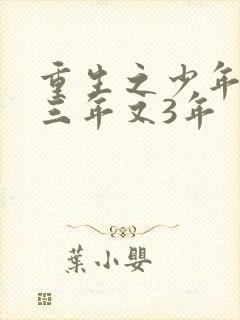 重生之少年
三年又3年
葉小嬰